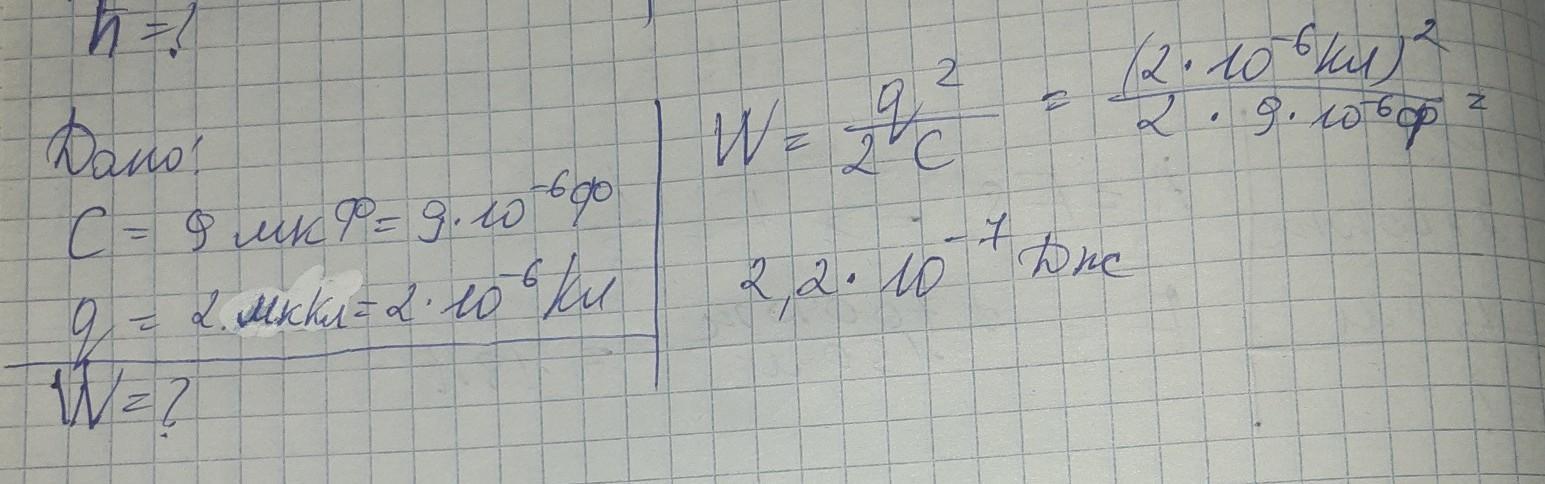 h = ?
Дано:
C = 9 мкФ = 9·10⁻⁶ф
q = 2 мккл = 2·10⁻⁶ кл
W = ?
W = q²/2C = (2·10⁻⁶кл)²/2·9·10⁻⁶ф =
2,2·10⁻⁷ Дж